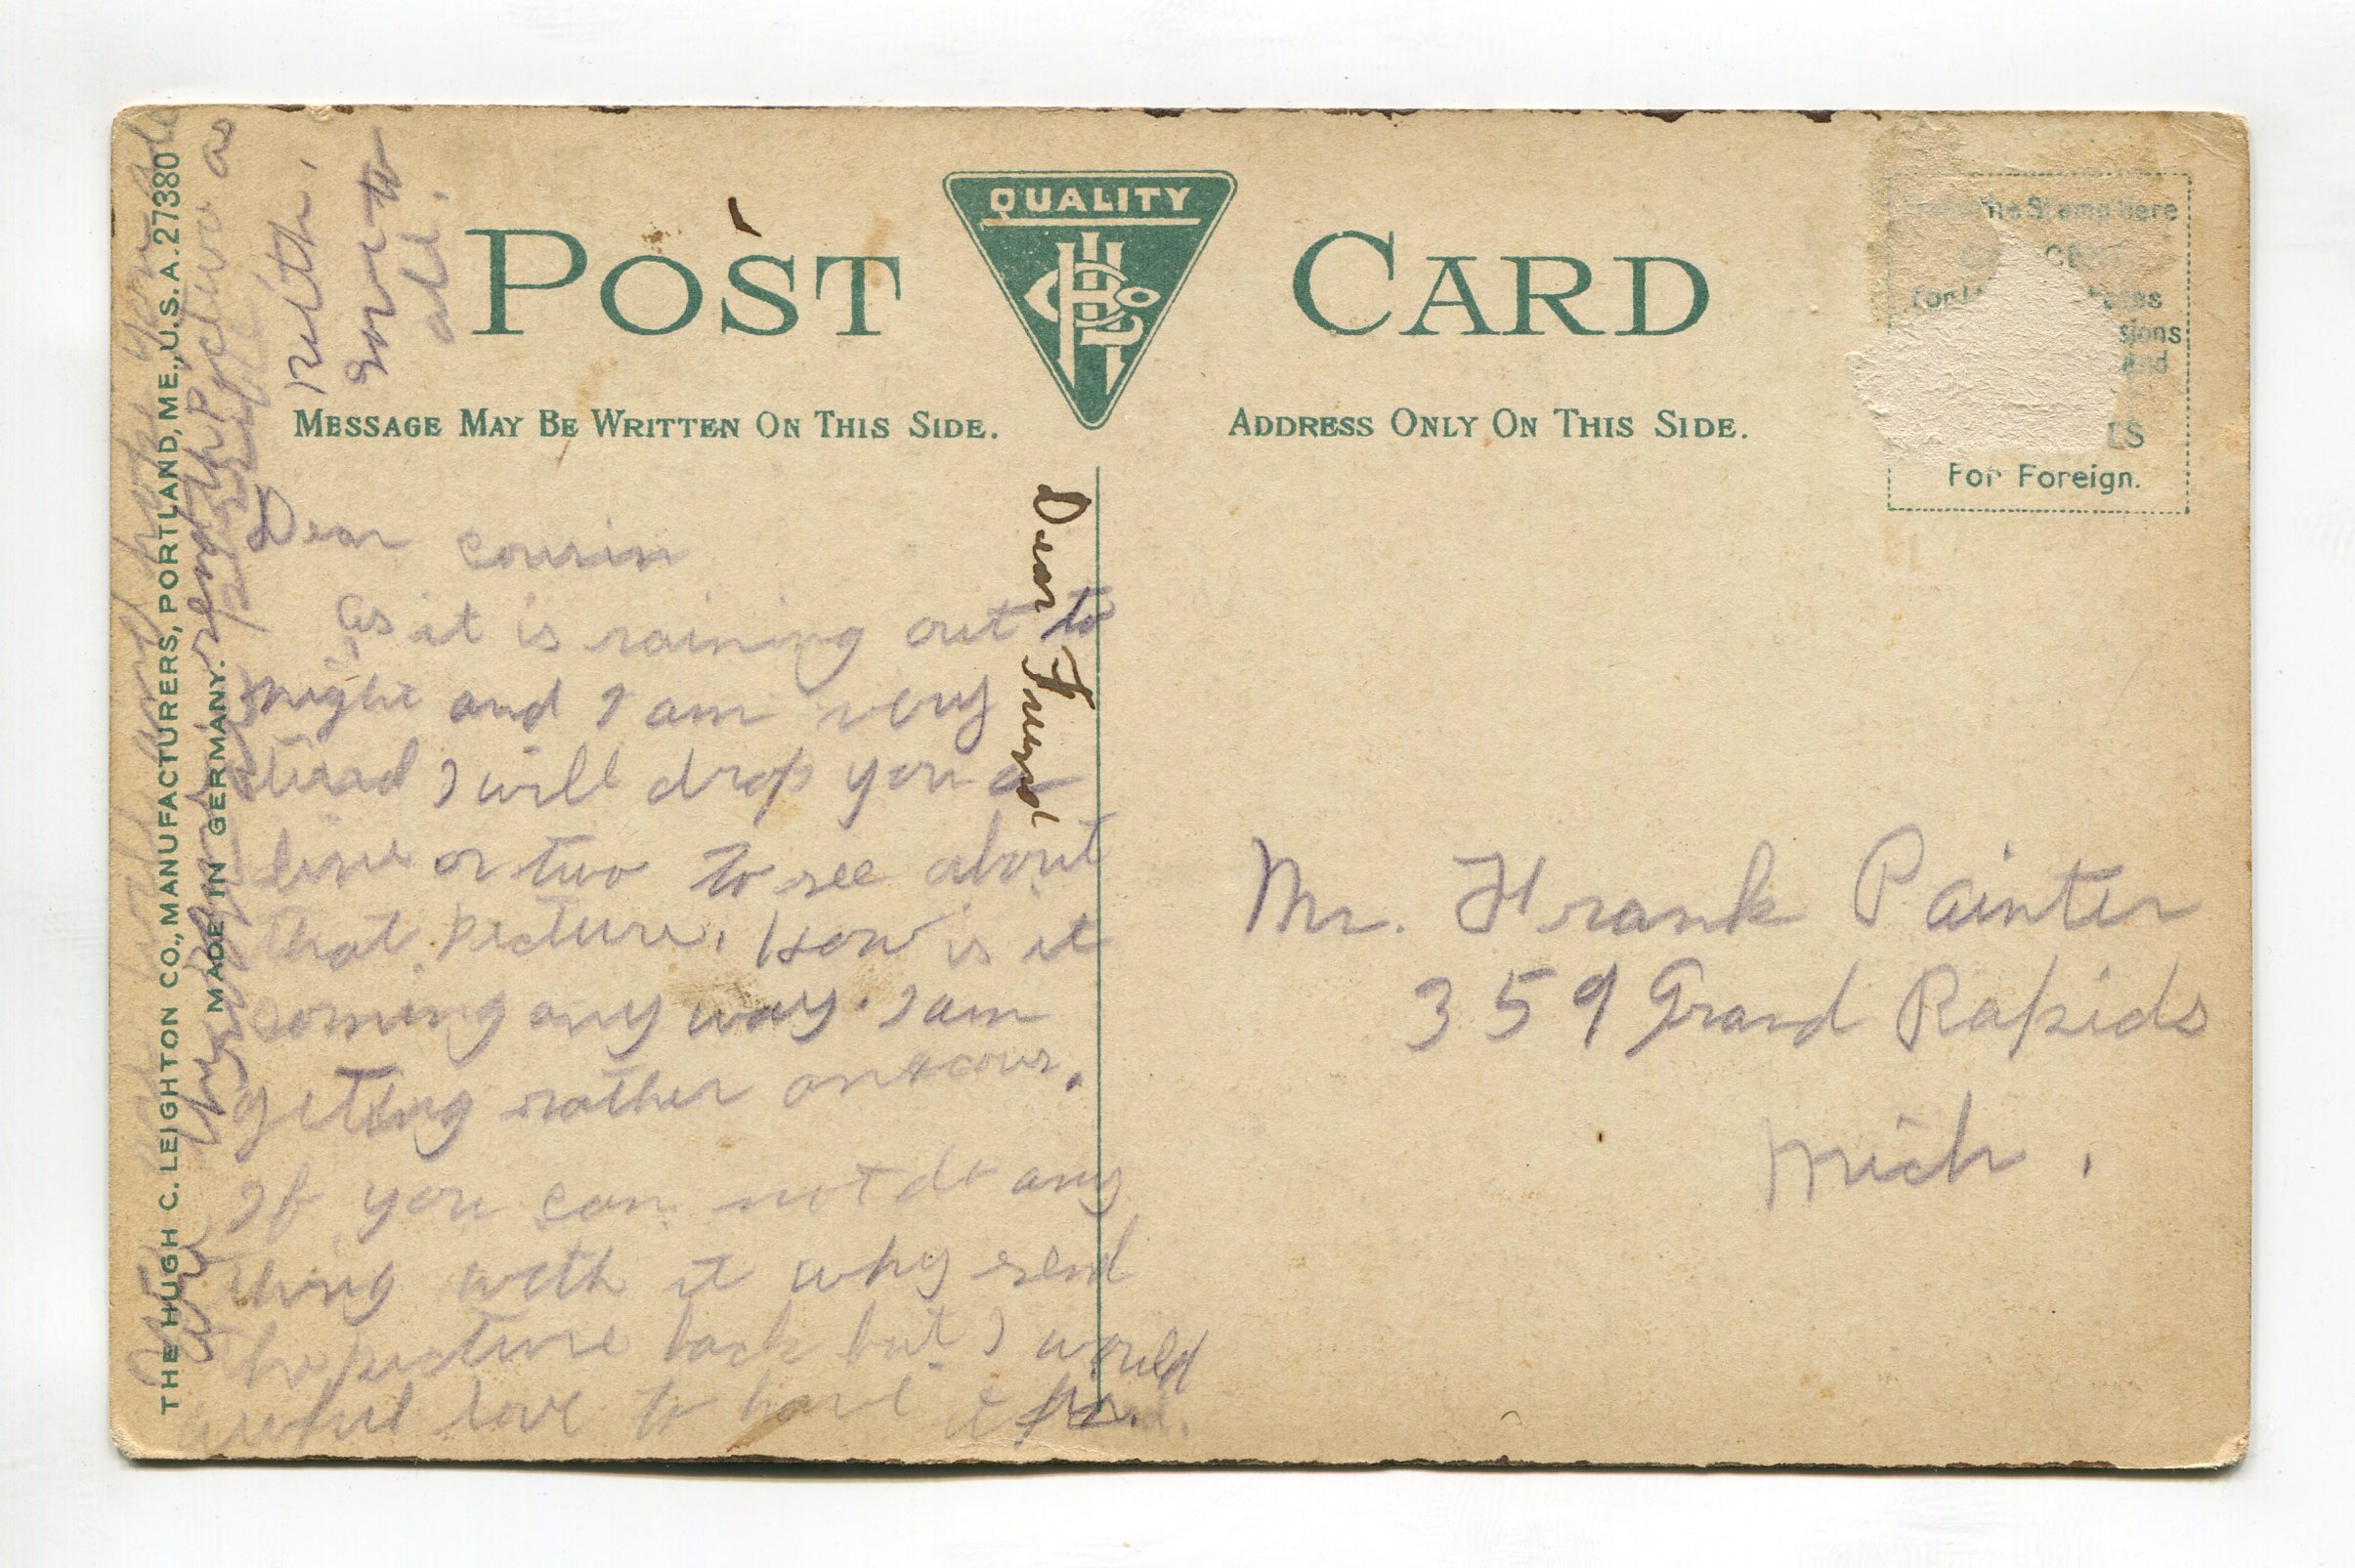 POST CARD
QUALITY
MESSAGE MAY BE WRITTEN ON THIS SIDE.
ADDRESS ONLY ON THIS SIDE.
the Stamp here
For Foreign.
THE HUGH C. LEIGHTON CO., MANUFACTURERS, PORTLAND, ME., U.S.A. 27380
MADE IN GERMANY.
Dear cousin
as it is raining out to
night and I am very
tired I will drop you a
line or two to see about
that picture. How is it
coming any way. I am
getting rather
If you can not do any
thing with it why send
the picture back but I would
love to have it
Ruth.
Love to
all.
Dear Friend
Mr. Frank Painter
359 Grand Rapids
Mich.